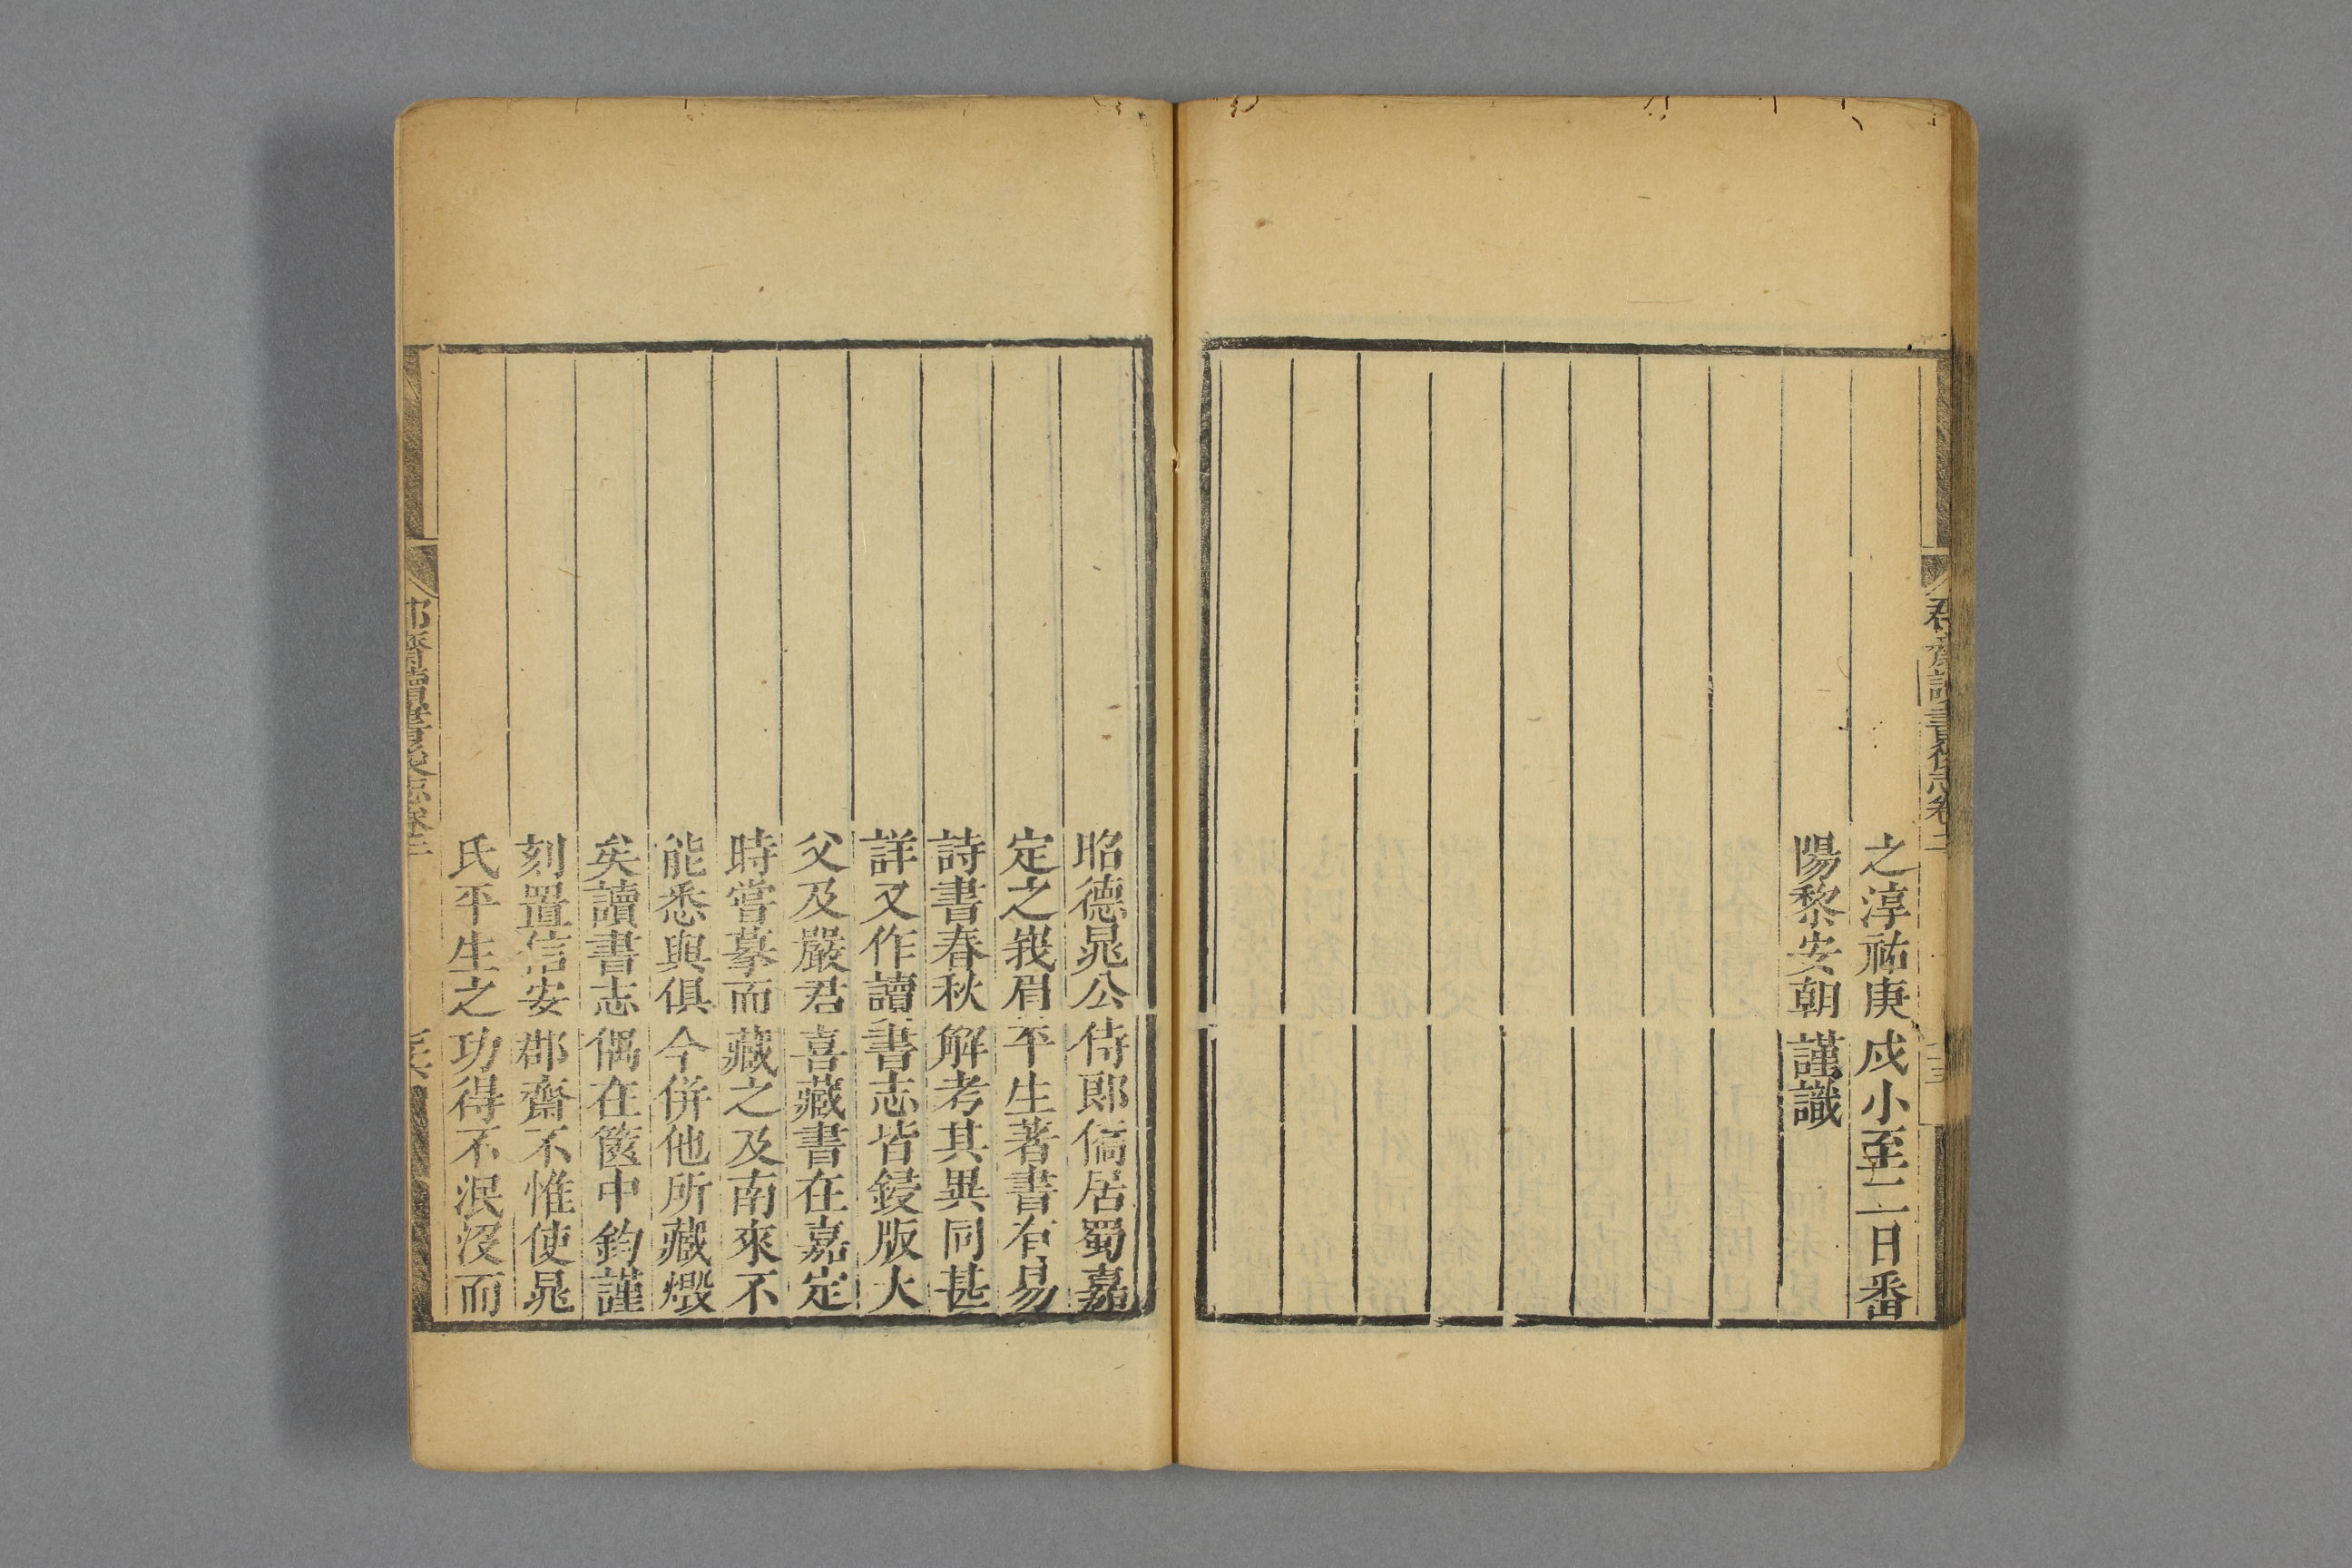 之淳祐庚戌小至二日番
陽黎安朝謹識
昭德晁公侍郎僑居蜀嘉
定之峩眉平生著書有易
詩書春秋解考其異同甚
詳又作讀書志皆鋟版大
父及嚴君喜藏書在嘉定
時嘗摹而藏之及南來不
能悉與俱今併他所藏燬
矣讀書志偶在篋中鈞謹
刻置信安郡齋不惟使晁
氏平生之功得不泯沒而